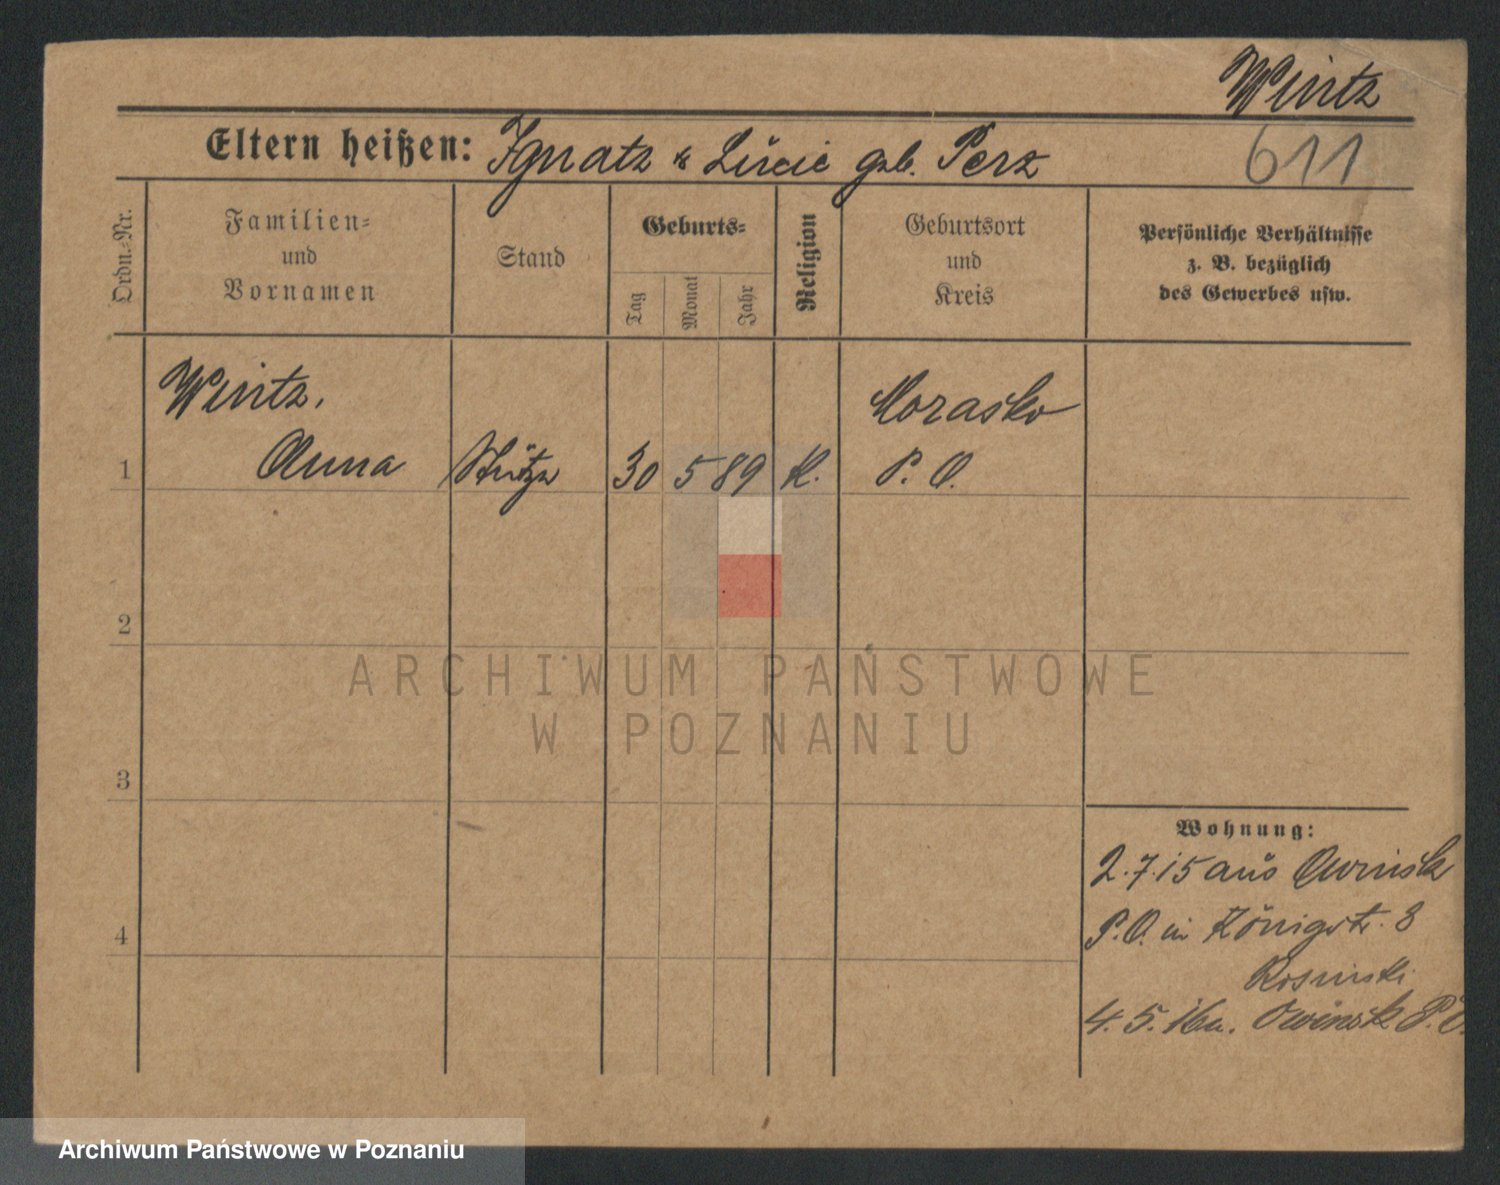 Wirtz
Eltern heißen: Ignatz & Lucie geb. Perz
611
Ordn.-Nr.
Familien-
und
Vornamen
Stand
Geburts-
Tag
Monat
Jahr
Religion
Geburtsort
und
Kreis
Persönliche Verhältnisse
z. B. bezüglich
des Gewerbes usw.
Wirtz, Morasko
1 Anna Stütze 30 5 89 K. P. O.
2
ARCHIWUM PAŃSTWOWE
W POZNANIU
3
Wohnung:
2.7.15 aus Owinsk
4
P.O. in Königstr. 8
Rosinski
4.5.16 n. Owinsk P.O.
Archiwum Państwowe w Poznaniu